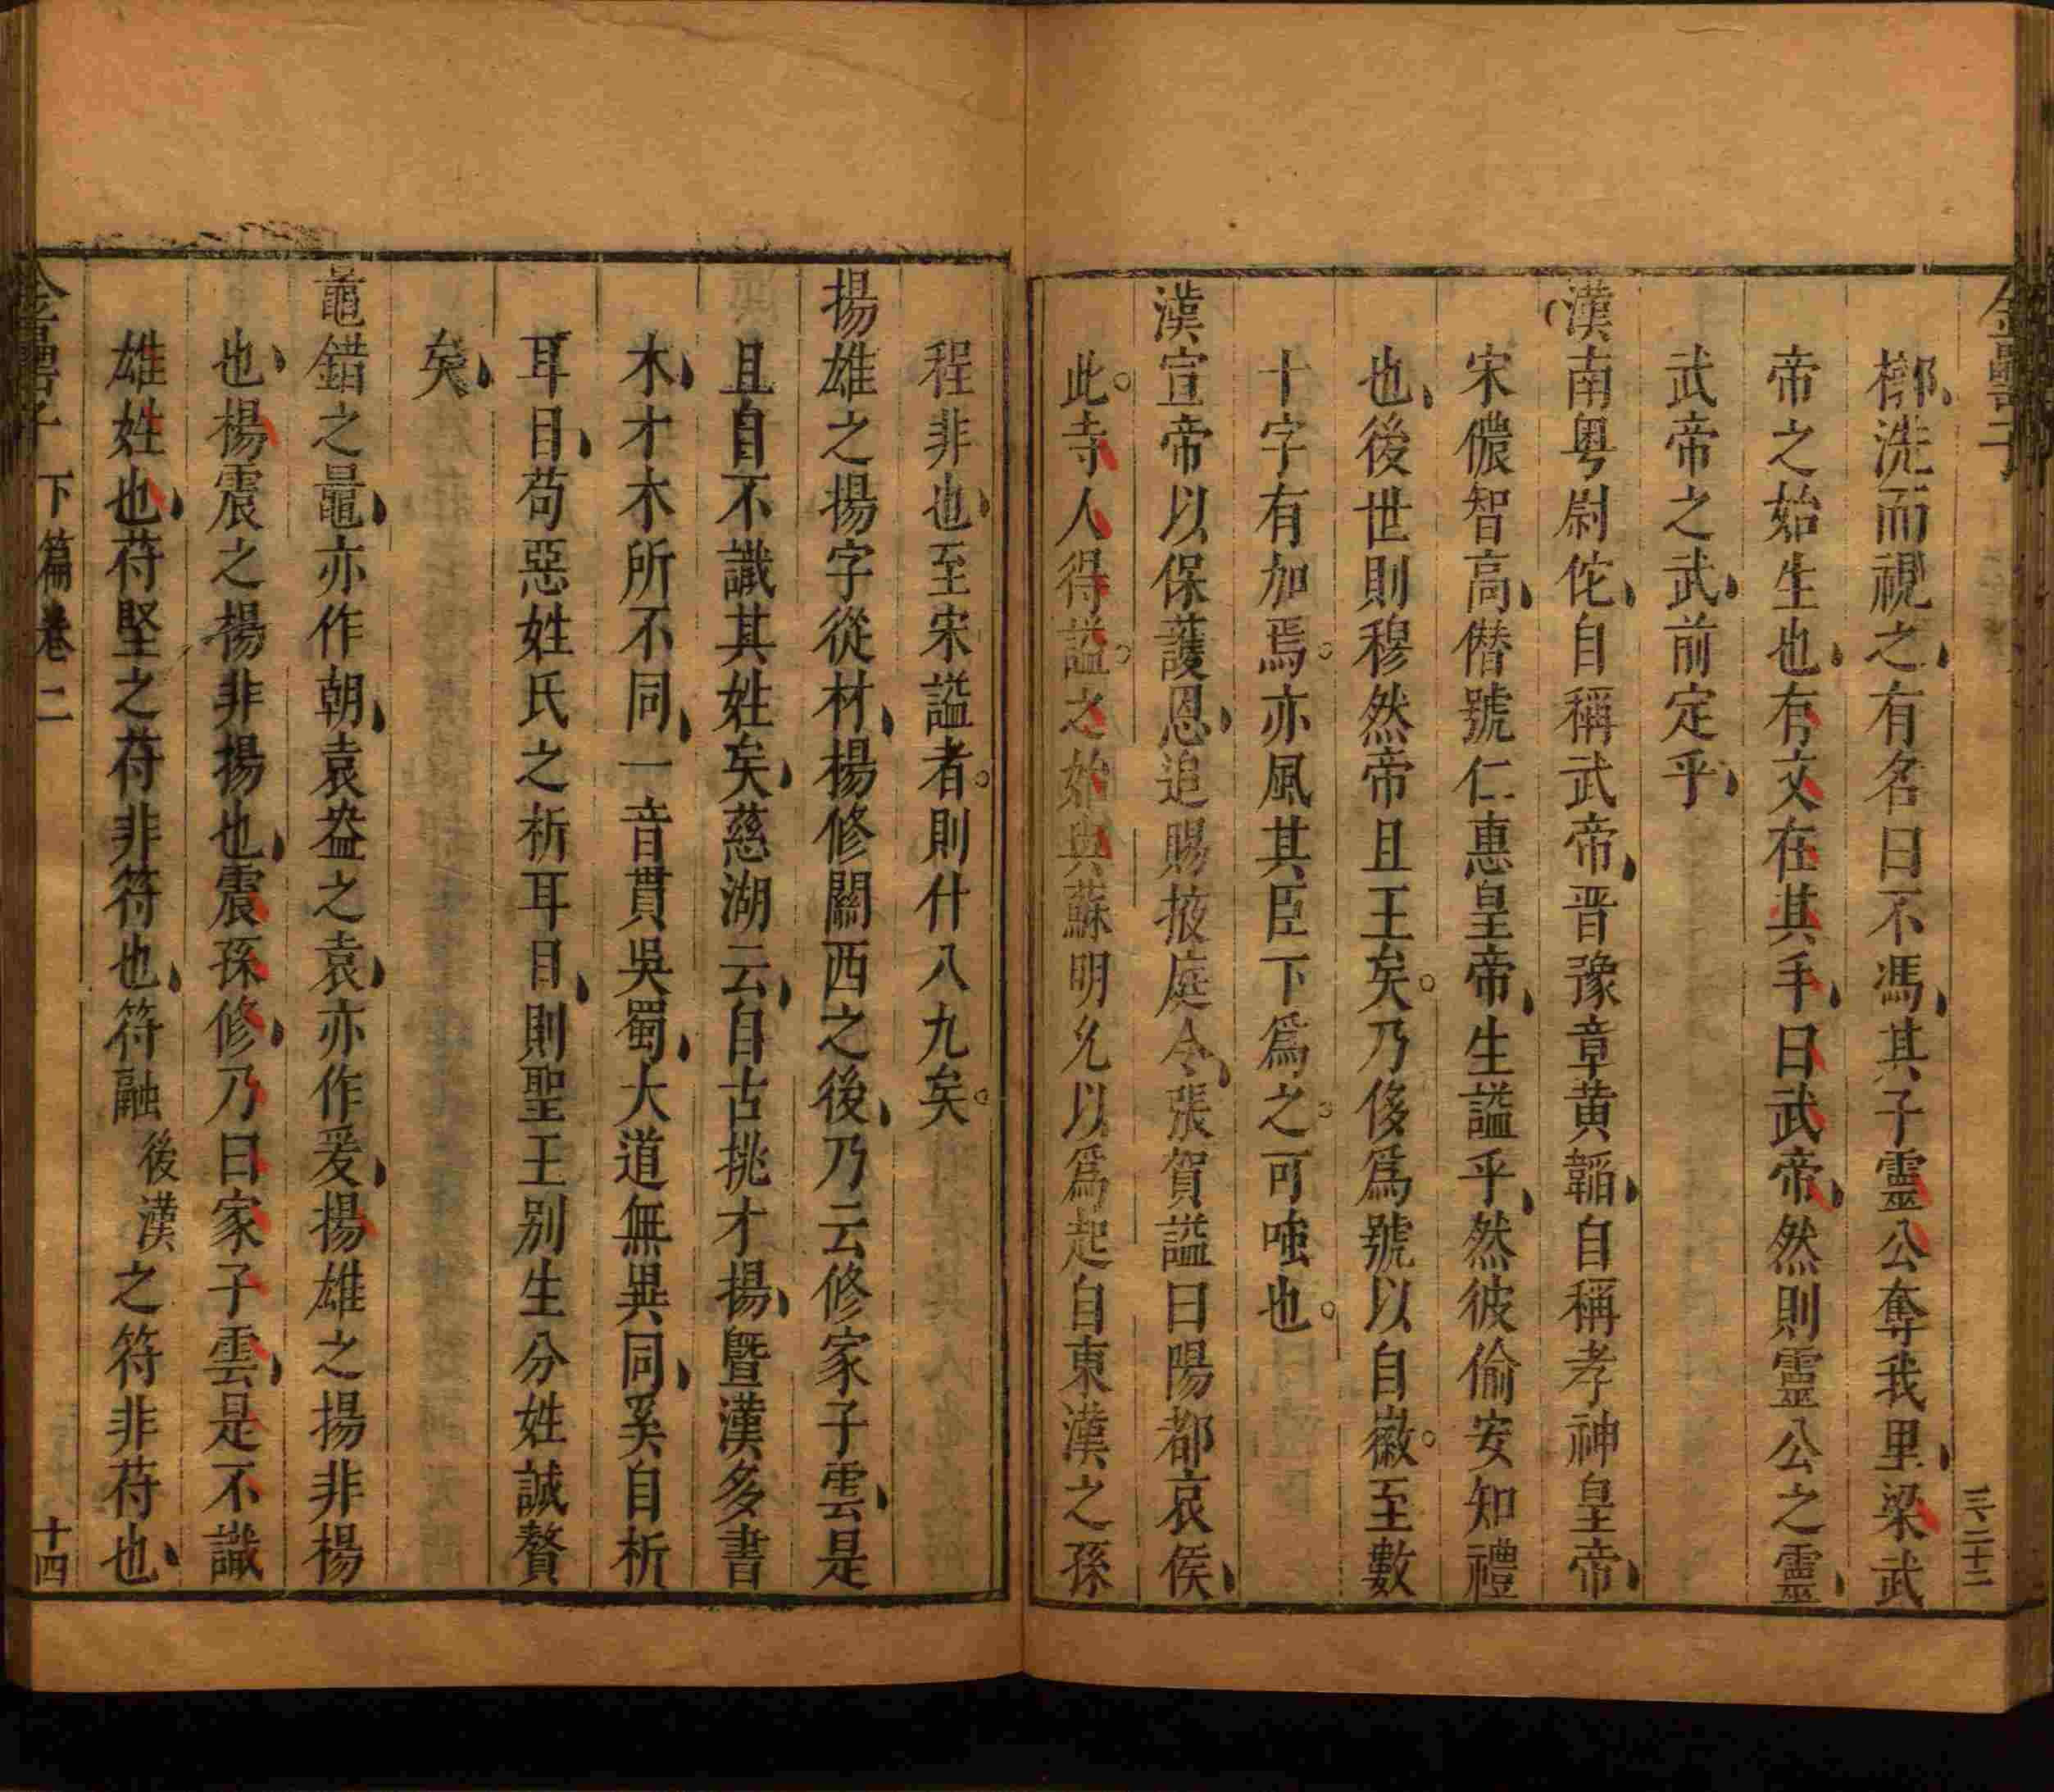 槨洗而視之有名曰不馮其子靈公奪我里梁武
帝之始生也有文在其手曰武帝然則靈公之靈
武帝之武前定乎
漢南粵尉佗自稱武帝晋豫章黄韜自稱孝神皇帝
宋儂智高僣號仁惠皇帝生謚乎然彼偷安知禮
也後世則穆然帝且王矣乃侈爲號以自徽至數
十字有加焉亦風其臣下爲之可嗤也
漢宣帝以保護恩追賜掖庭令張賀謚曰陽都哀侯
此寺人得謚之始與蘇明允以爲起自東漢之孫
程非也至宋謚者則什八九矣
揚雄之揚字從材楊修關西之後乃云修家子雲是
且自不識其姓矣慈湖云自古挑才揚曁漢多書
木才木所不同一音貫吳蜀大道無異同奚自析
耳目苟惡姓氏之析耳目則聖王别生分姓誠贅
矣
鼂錯之鼂亦作朝袁盎之袁亦作爰揚雄之揚非楊
也楊震之楊非揚也震孫修乃曰家子雲是不識
雄姓也苻堅之苻非符也符融後漢之符非苻也
下篇卷二
十四